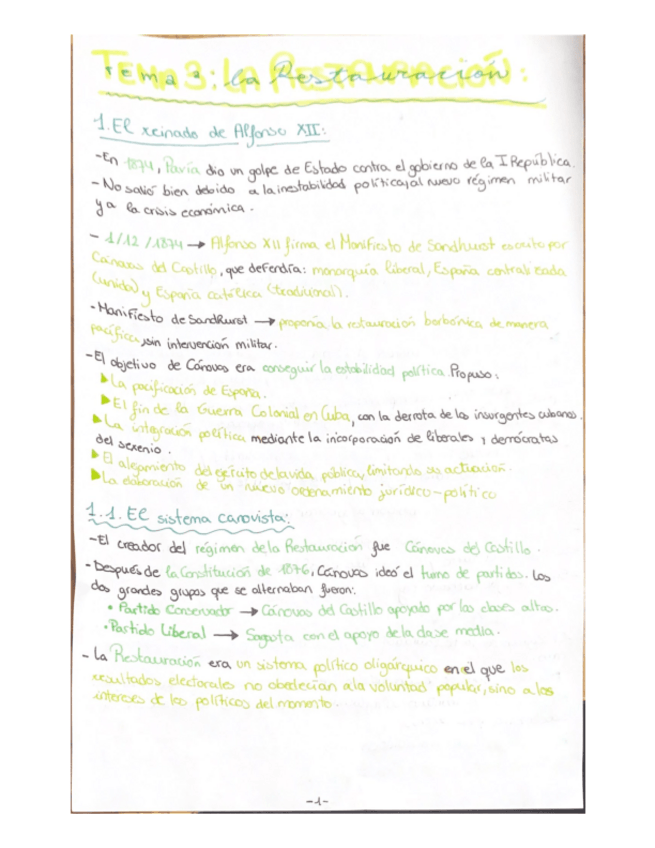 Tema 3: La Restauración:
1. El reinado de Alfonso XII:
-En 1874, Pavía dio un golpe de Estado contra el gobierno de la I República.
-No salió bien debido a la inestabilidad política, al nuevo régimen militar
y a la crisis económica.
- 1/12/1874 → Alfonso XII firma el Manifiesto de Sandhurst escrito por
Cánovas del Castillo, que defendía: monarquía liberal, España centralizada
(unida) y España católica (tradicional).
-Manifiesto de Sandhurst → proponía la restauración borbónica de manera
pacífica, sin intervención militar.
-El objetivo de Cánovas era conseguir la estabilidad política. Propuso:
▶La pacificación de España.
▶El fin de la Guerra Colonial en Cuba, con la derrota de los insurgentes cubanos.
▶La integración política mediante la incorporación de liberales y demócratas
del sexenio.
▶El alejamiento del ejército de la vida pública, limitando su actuación.
▶La elaboración de un nuevo ordenamiento jurídico-político
1.1. El sistema canovista:
-El creador del régimen de la Restauración fue Cánovas del Castillo.
-Después de la Constitución de 1876, Cánovas ideó el turno de partidos. Los
dos grandes grupos que se alternaban fueron:
• Partido Conservador → Cánovas del Castillo apoyado por las clases altas.
• Partido Liberal → Sagasta con el apoyo de la clase media.
- La Restauración era un sistema político oligárquico en el que los
resultados electorales no obedecían a la voluntad popular, sino a los
intereses de los políticos del momento.
-1-